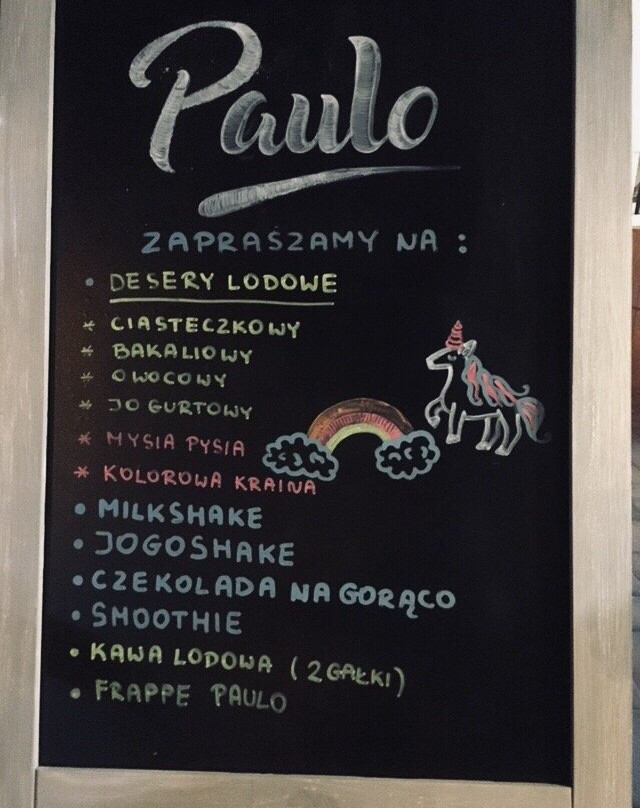 Paulo
ZAPRASZAMY NA :
• DESERY LODOWE
* CIASTECZKOWY
* BAKALIOWY
* OWOCOWY
* JOGURTOWY
* MYSIA PYSIA
* KOLOROWA KRAINA
• MILKSHAKE
• JOGOSHAKE
• CZEKOLADA NA GORĄCO
• SMOOTHIE
• KAWA LODOWA (2 GAŁKI)
• FRAPPE PAULO